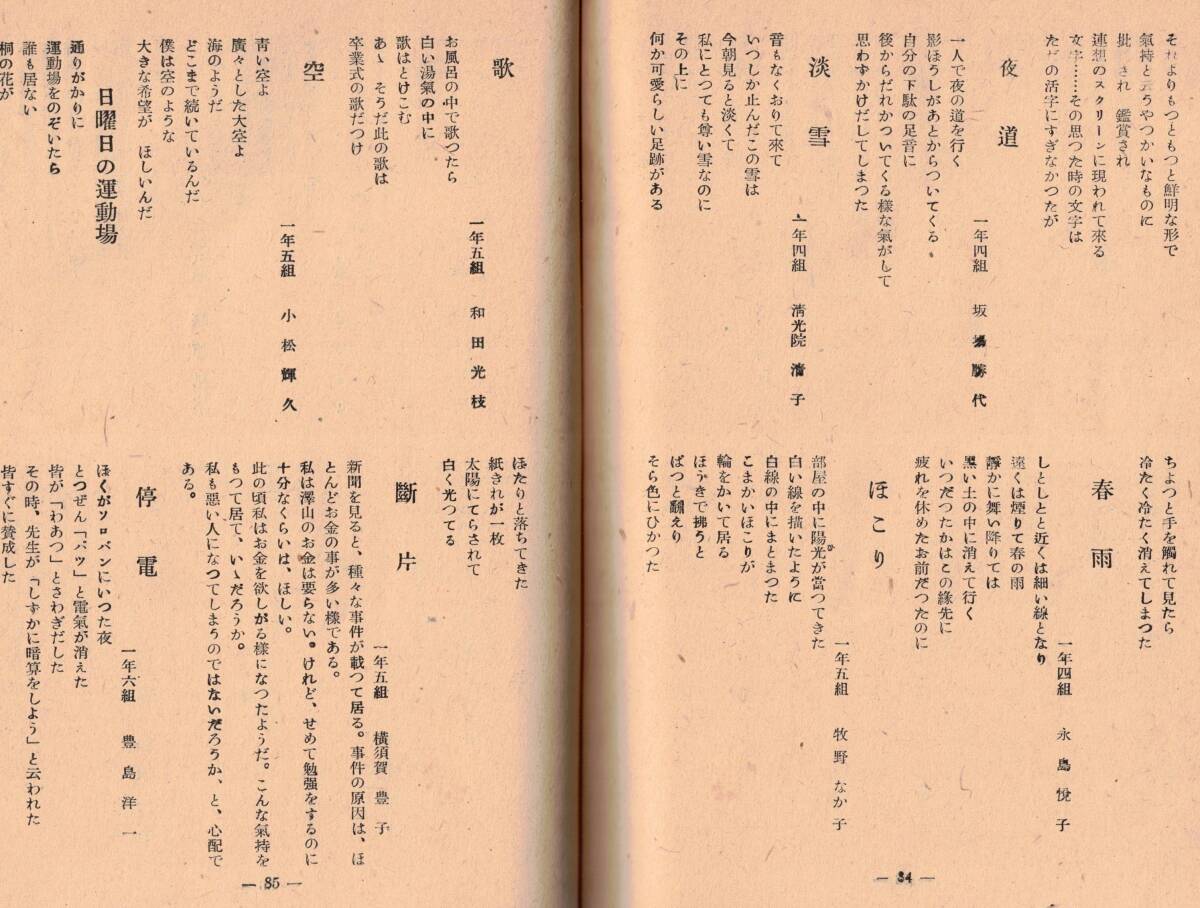 それよりもつともつと鮮明な形で
氣持と云うやつかいなものに
批 され 鑑賞され
連想のスクリーンに現われて來る
文字……その思つた時の文字は
たゞの活字にすぎなかつたが
夜道
一年四組 坂 勝代
一人で夜の道を行く
影ぼうしがあとからついてくる
自分の下駄の足音に
後からだれかついてくる様な氣がして
思わずかけだしてしまつた
淡雪
一年四組 淸光院 淸子
音もなくおりて來て
いつしか止んだこの雪は
今朝見ると淡くて
私にとつても尊い雪なのに
その上に
何か可愛らしい足跡がある
ちよつと手を觸れて見たら
冷たく冷たく消えてしまつた
春雨
一年四組 永島悅子
しとしとと近くは細い線となり
遠くは煙りて春の雨
靜かに舞い降りては
黑い土の中に消えて行く
いつだつたかはこの緣先に
疲れを休めたお前だつたのに
ほこり
一年五組 牧野なか子
部屋の中に陽光が當つてきた
白い線を描いたように
白線の中にまとまつた
こまかいほこりが
輪をかいて居る
ほうきで拂うと
ぱつと飜えり
そら色にひかつた
― 84 ―
歌
一年五組 和田光枝
お風呂の中で歌つたら
白い湯氣の中に
歌はとけこむ
あゝ そうだ此の歌は
卒業式の歌だつけ
空
一年五組 小松輝久
靑い空よ
廣々とした大空よ
海のようだ
どこまで続いているんだ
僕は空のような
大きな希望が ほしいんだ
日曜日の運動場
通りがかりに
運動場をのぞいたら
誰も居ない
桐の花が
ぽたりと落ちてきた
紙きれが一枚
太陽にてらされて
白く光つてる
斷片
一年五組 橫須賀豊子
新聞を見ると、種々な事件が載つて居る。事件の原因は、ほ
とんどお金の事が多い様である。
私は澤山のお金は要らない。けれど、せめて勉強をするのに
十分なくらいは、ほしい。
此の頃私はお金を欲しがる様になつたようだ。こんな氣持を
もつて居て、いゝだろうか。
私も悪い人になつてしまうのではないだろうか、と、心配で
ある。
停電
一年六組 豊島洋一
ぼくがソロバンにいつた夜
とつぜん「パツ」と電氣が消えた
皆が「わあつ」とさわぎだした
その時、先生が「しずかに暗算をしよう」と云われた
皆すぐに賛成した
― 85 ―